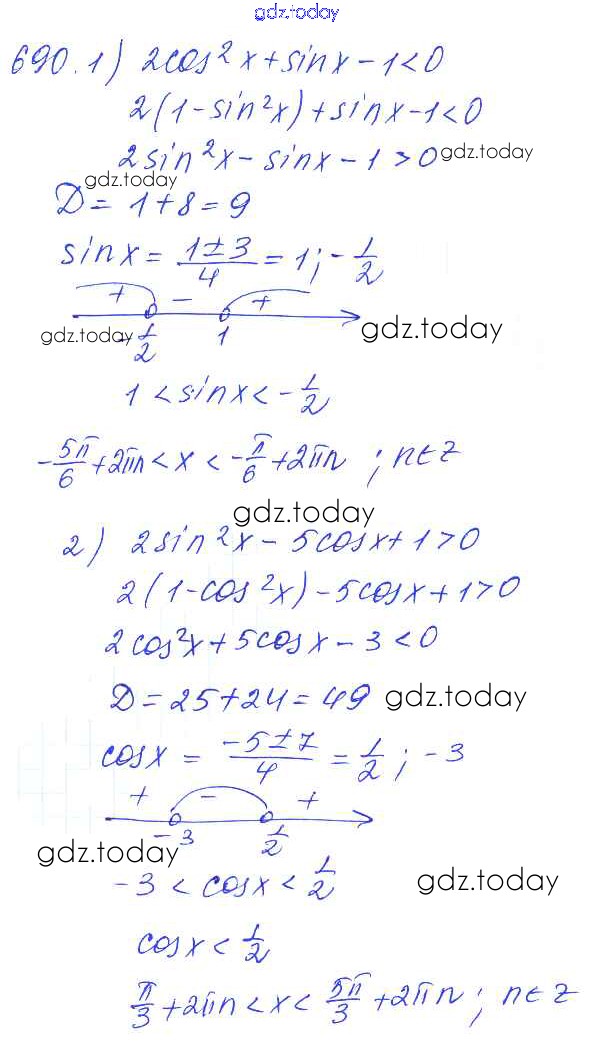 gdz.today
690. 1) 2cos²x + sinx − 1 < 0
2(1 − sin²x) + sinx − 1 < 0
2sin²x − sinx − 1 > 0 gdz.today
gdz.today
D = 1 + 8 = 9
sinx = (1 ± 3)/4 = 1; −1/2
+ − +
gdz.today −1/2 1 gdz.today
1 < sinx < −1/2
−5π/6 + 2πn < x < −π/6 + 2πn ; n∈Z
gdz.today
2) 2sin²x − 5cosx + 1 > 0
2(1 − cos²x) − 5cosx + 1 > 0
2cos²x + 5cosx − 3 < 0
D = 25 + 24 = 49 gdz.today
cosx = (−5 ± 7)/4 = 1/2 ; −3
+ − +
−3 1/2
gdz.today
−3 < cosx < 1/2 gdz.today
cosx < 1/2
π/3 + 2πn < x < 5π/3 + 2πn ; n∈Z